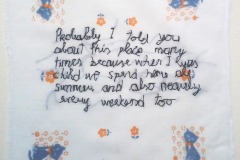 Probably I told you
about this place many
times because when I was
child we spend here all
summer and also nearly
every weekend too